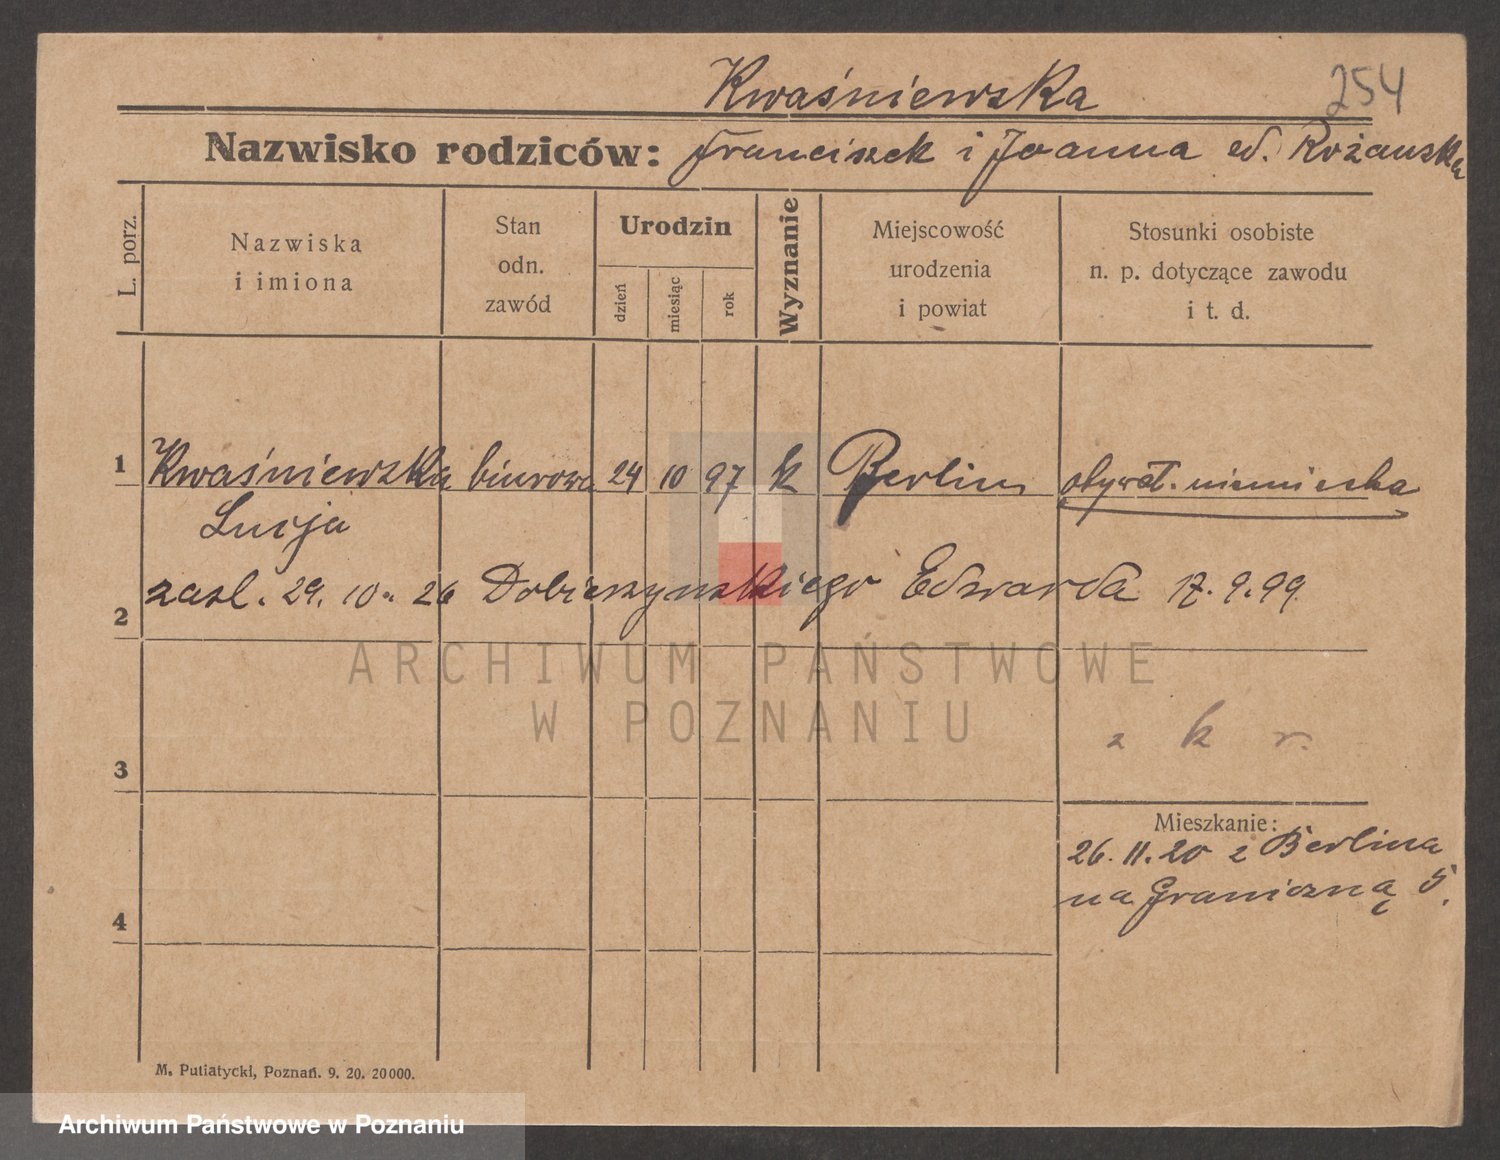 Kwaśniewska
254
Nazwisko rodziców: Franciszek i Joanna ed. Rożańska
L. porz.
Nazwiska
i imiona
Stan
odn.
zawód
Urodzin
dzień
miesiąc
rok
Wyznanie
Miejscowość
urodzenia
i powiat
Stosunki osobiste
n. p. dotyczące zawodu
i t. d.
1 Kwaśniewska biurowa 24 10 97 k Berlin obywat. niemiecka
Lucja
2 zasl. 29. 10. 26 Dobierzyńskiego Edwarda 17.9.99
ARCHIWUM PAŃSTWOWE
W POZNANIU
z k r.
3
Mieszkanie:
26.11.20 z Berlina
na Graniczną 5.
4
M. Putiatycki, Poznań. 9. 20. 20000.
Archiwum Państwowe w Poznaniu